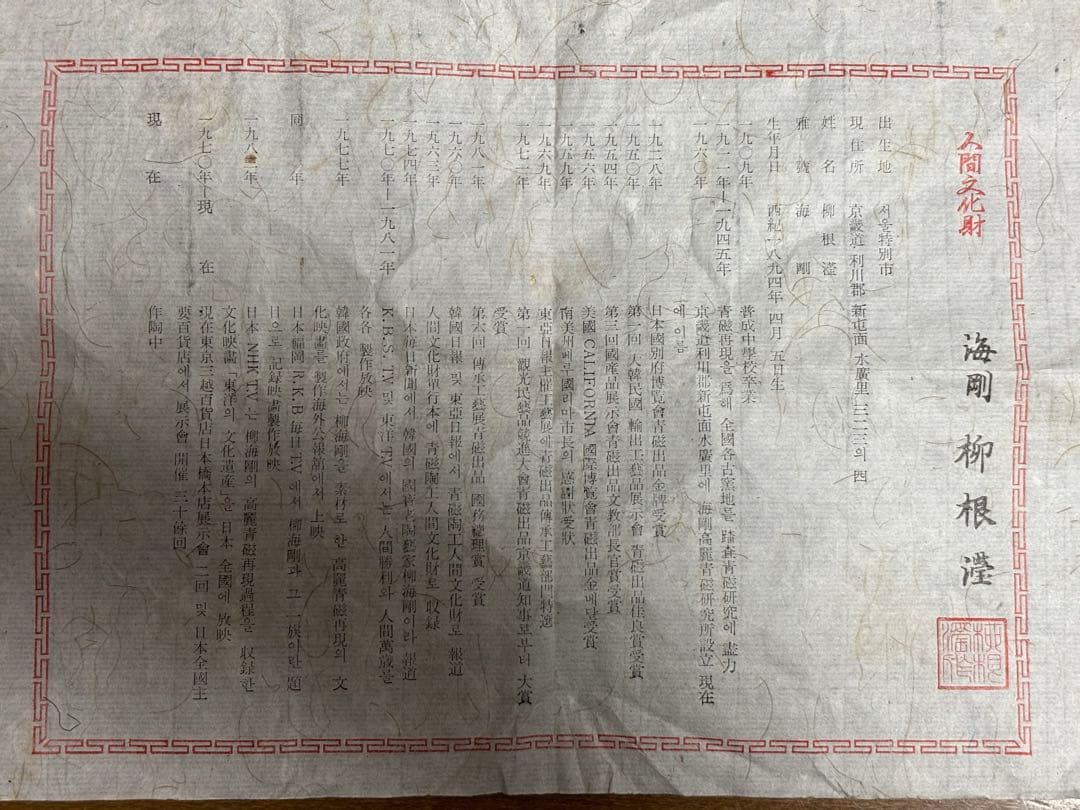 人間文化財
海剛 柳根瀅
出生地 서울特別市
現住所 京畿道 利川郡 新屯面 水廣里 三二三의 四
姓名 柳根瀅
雅號 海剛
生年月日 西紀一八九四年 四月 五日生
一九〇九年 普成中學校卒業
一九一一年—一九四五年 青磁再現을 爲해 全國各古窯地를 踏査青磁研究에 盡力
一九六〇年 京畿道利川郡新屯面水廣里에 海剛高麗青磁研究所設立 現在
에 이름
一九二八年 日本國別府博覽會青磁出品金牌受賞
一九五〇年 第一回 大韓民國 輸出工藝品展示會 青磁出品佳良賞受賞
一九五四年 第三回國産品展示會青磁出品文教部長官賞受賞
一九五六年 美國 CALIFORNIA 國際博覽會青磁出品金메달受賞
一九五九年 南美州페루國리마市長의 感謝狀受狀
一九六九年 東亞日報主催工藝展에 青磁出品傳承工藝部門特選
一九七一年 第一回 觀光民藝品競進大會青磁出品京畿道知事로부터 大賞
受賞
一九八一年 第六回 傳承工藝展青磁出品 國務總理賞 受賞
一九六〇年 韓國日報 및 東亞日報에서 青磁陶工人間文化財로 報道
一九六三年 人間文化財單行本에 青磁陶工人間文化財로 收録
一九七四年 日本每日新聞에서 韓國의 國寶老陶藝家柳海剛이라 報道
一九七〇年—一九八一年 K.B.S. TV 및 東洋 TV에서는 人間勝利와 人間萬歲를
各各 製作放映
一九七七年 韓國政府에서는 柳海剛을 素材로 한 高麗青磁再現의 文
化映畵를 製作海外公報館에서 上映
同 年 日本福岡 R.K.B 每日 T.V에서 柳海剛과 그 一族이란 題
目으로 記録映畵製作放映
一九八一年 日本 NHK T.V는 柳海剛의 高麗青磁再現過程을 收録한
文化映畵「東洋의 文化遺産」을 日本 全國에 放映
一九七〇年—現在 現在東京三越百貨店日本橋本店展示會 二回 및 日本全國主
要百貨店에서 展示會 開催 三十餘回
現在 作陶中